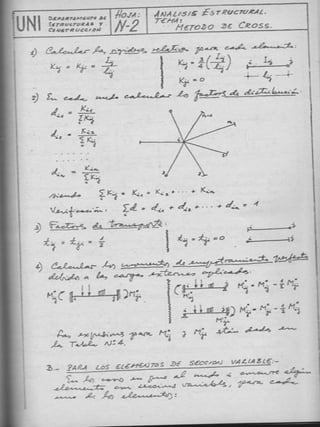 UNI DEPARTAMENTO DE ESTRUCTURAS Y CONSTRUCCIÓN
HOJA: N-2
ANALISIS ESTRUCTURAL.
TEMA: METODO DE CROSS.
1) Calcular las rigideces relativas para cada elemento:
Kij = Kji = Iij / Lij
Kij = 3/4 (Iij / Lij)
Kji = 0
2) En cada nudo calcular los factores de distribución:
di1 = Ki1 / ΣKij
di2 = Ki2 / ΣKij
din = Kin / ΣKij
siendo ΣKij = Ki1 + Ki2 + ... + Kin
Verificación: Σd = di1 + di2 + ... + din = 1
3) Factores de transporte:
tij = tji = 1/2
tij = tji = 0
4) Calcular los momentos de empotramiento perfecto
debido a las cargas externas aplicadas.
Las expresiones para M°ij y M°ji están dadas en
la Tabla N°4.
3.- PARA LOS ELEMENTOS DE SECCION VARIABLE:-
En los casos en que al nudo i concurre algún
elemento con sección variable, para cada
uno de los elementos: